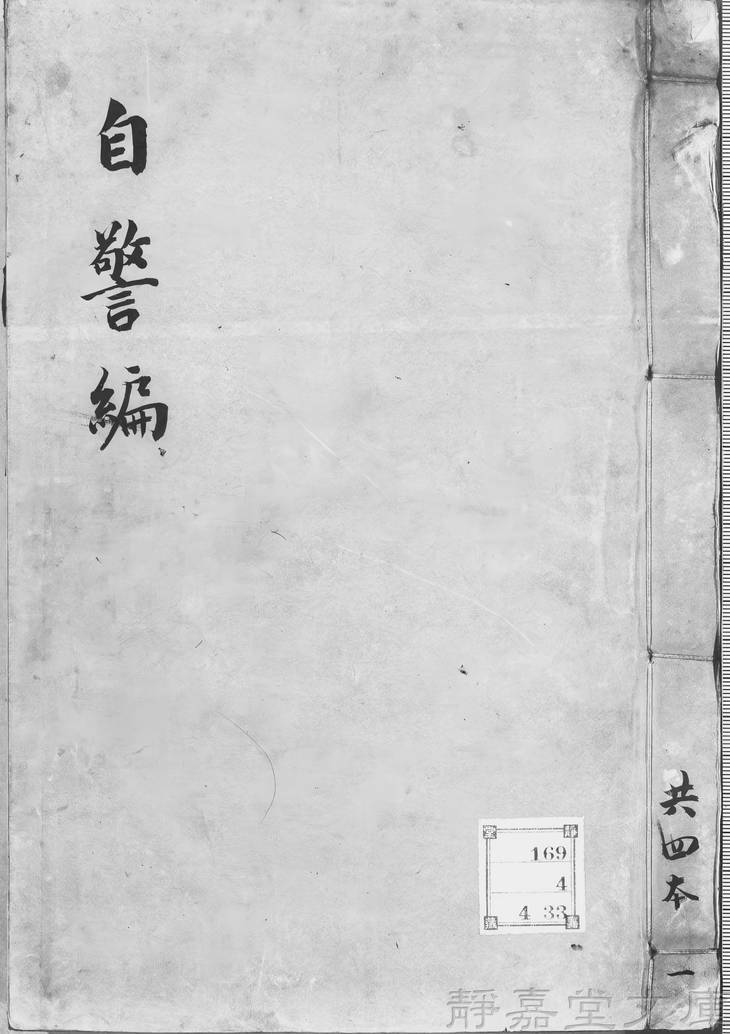 自警編
共四本
一
169
4
4 33
靜嘉堂文庫